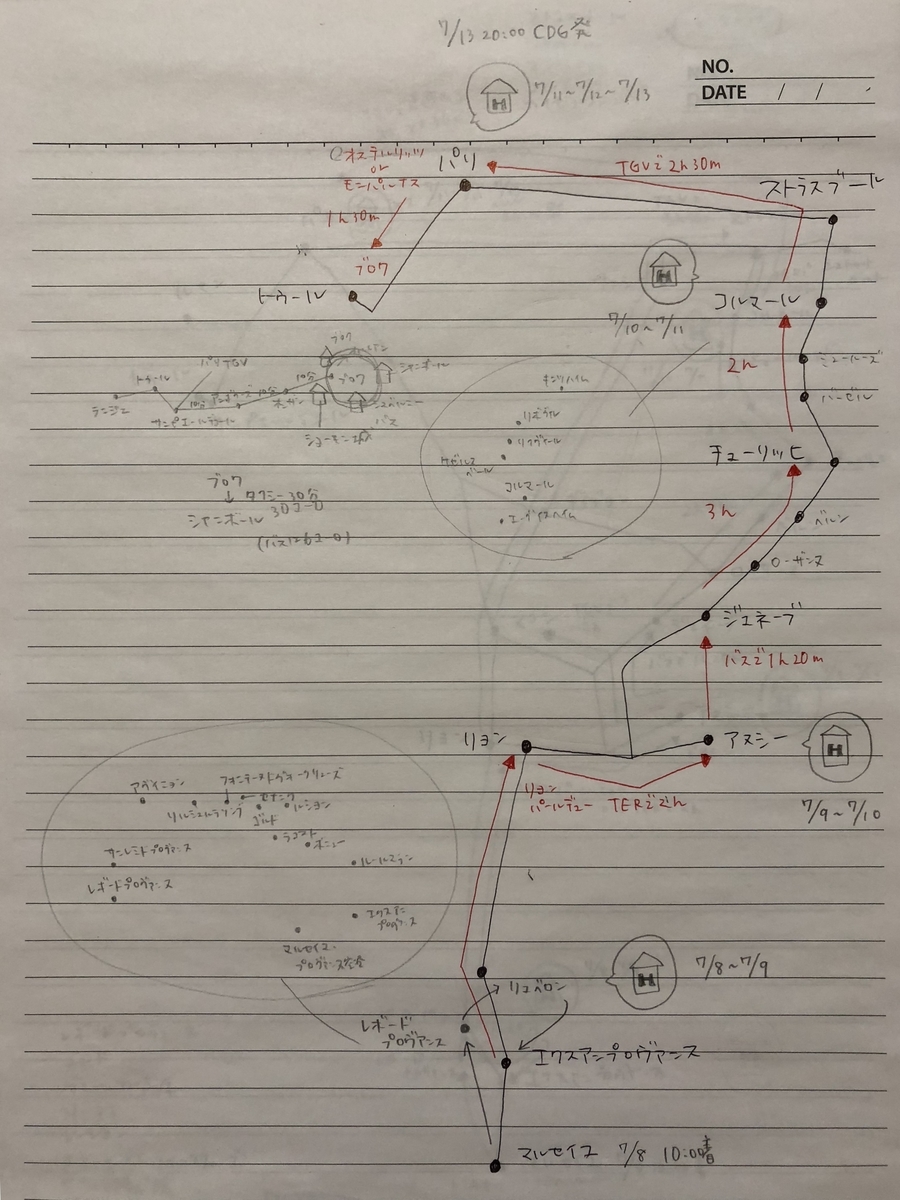 7/13 20:00 CDG発
NO.
DATE / / ・
H
7/11~7/12~7/13
オステルリッツ
or
モンパルナス
パリ
TGVで2h30m
ストラスブール
1h30m
ブロワ
トゥール
H
7/10~7/11
コルマール
ミュールーズ
バーゼル
2h
チューリッヒ
3h
ベルン
ローザンヌ
ジュネーブ
バスで1h20m
ブロワ
パリTGV
トゥール
ランジェ
サンピエールデコール
10分
10分
ブロワ
シャンボール
バス
ブロワ
↓ タクシー30分
シャンボール 30ユーロ
リボヴィル
コルマール
エーグイスハイム
リヨン
アヌシー
H
7/9~7/10
リヨン
パールデュー TERで2h
アヴィニョン
ゴルド
ルシヨン
ラコスト
ボニュー
ルールマラン
サンレミドプロヴァンス
レボードプロヴァンス
エクスアン
プロヴァンス
マルセイユ・
プロヴァンス空港
H
7/8~7/9
リュベロン
レボード
プロヴァンス
エクスアンプロヴァンス
マルセイユ 7/8 10:00着